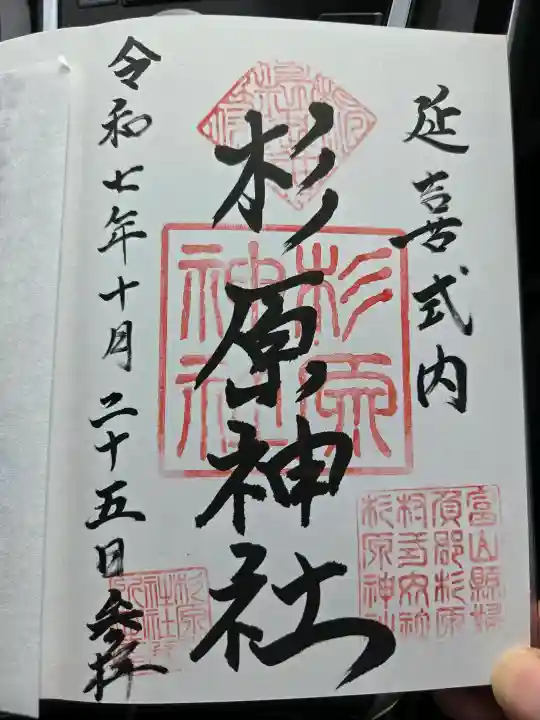 延喜式内
杉原神社
杉原神社
富山縣婦
負郡杉原
杉原神社
令和七年十月二十五日参拝